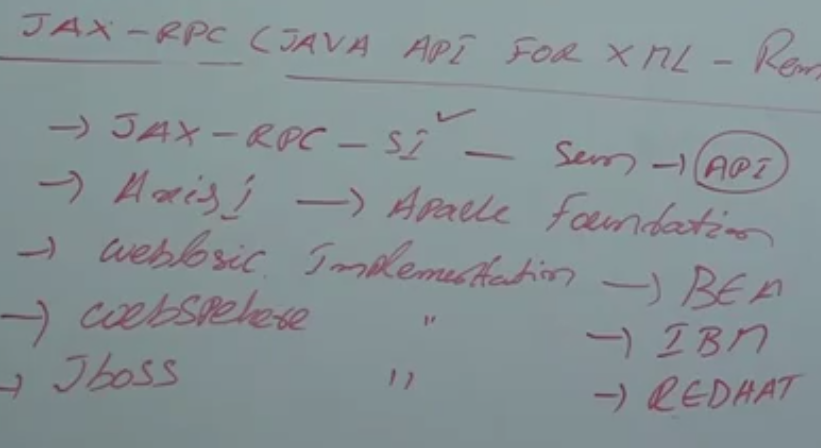 JAX-RPC (JAVA API FOR XML - Rem
→ JAX-RPC-SI ✓ — Sun → API
→ Axis1 → Apache Foundation
→ weblogic Implementation → BEA
→ webspehere " → IBM
→ Jboss " → REDHAT